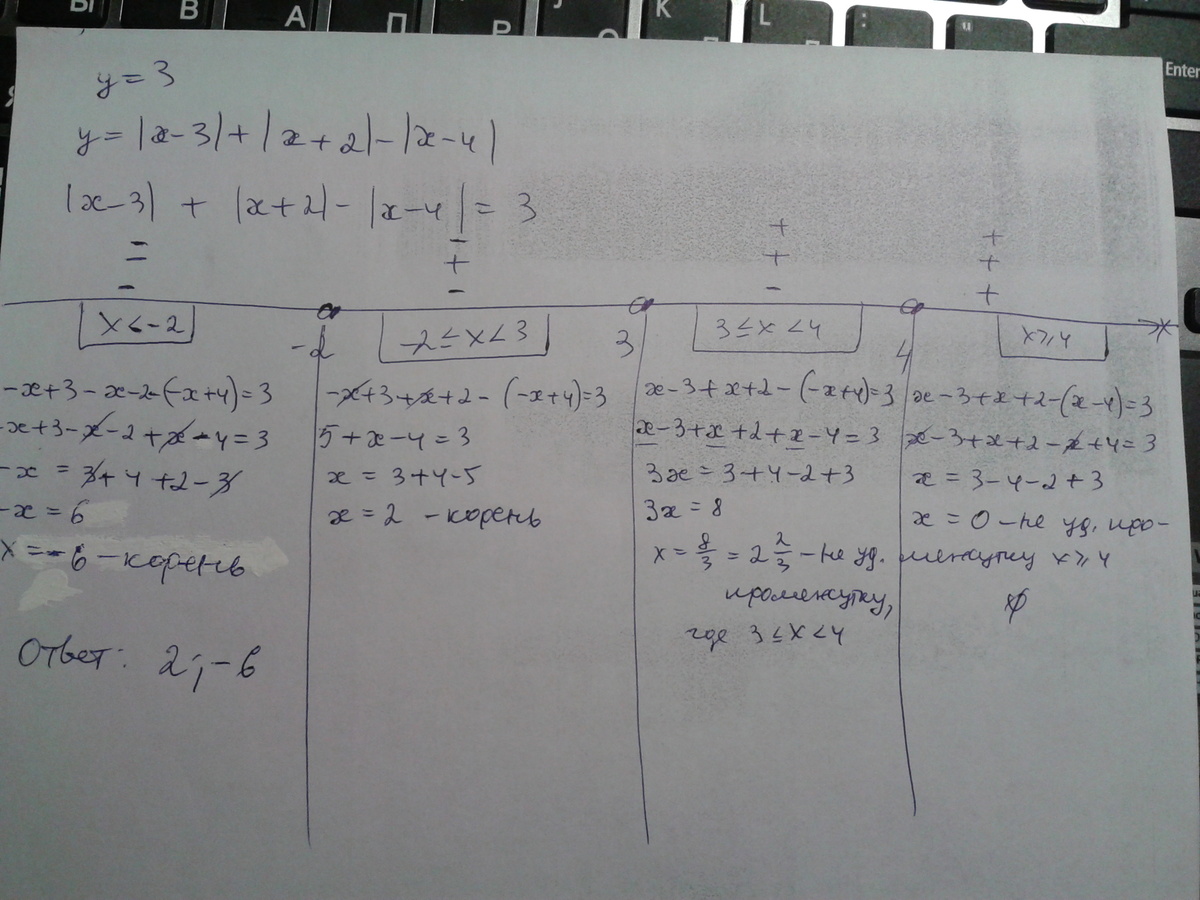 Ы В А П Р К L : " Enter
y = 3
y = |x-3| + |x+2| - |x-4|
|x-3| + |x+2| - |x-4| = 3
- - + +
- + + +
- - - +
x < -2
-2 ≤ x < 3
3 ≤ x < 4
x ≥ 4
-2 3 4 x
-x+3-x-2-(-x+4)=3
-x+3-x-2+x-4=3
-x = 3+4+2-3
-x = 6
x = -6 - корень
-x+3+x+2-(-x+4)=3
5+x-4=3
x = 3+4-5
x = 2 - корень
x-3+x+2-(-x+4)=3
x-3+x+2+x-4=3
3x = 3+4-2+3
3x = 8
x = 8/3 = 2 2/3 - не уд.
промежутку,
где 3 ≤ x < 4
x-3+x+2-(x-4)=3
x-3+x+2-x+4=3
x = 3-4-2+3
x = 0 - не уд. про-
межутку x ≥ 4
∅
Ответ: 2; -6